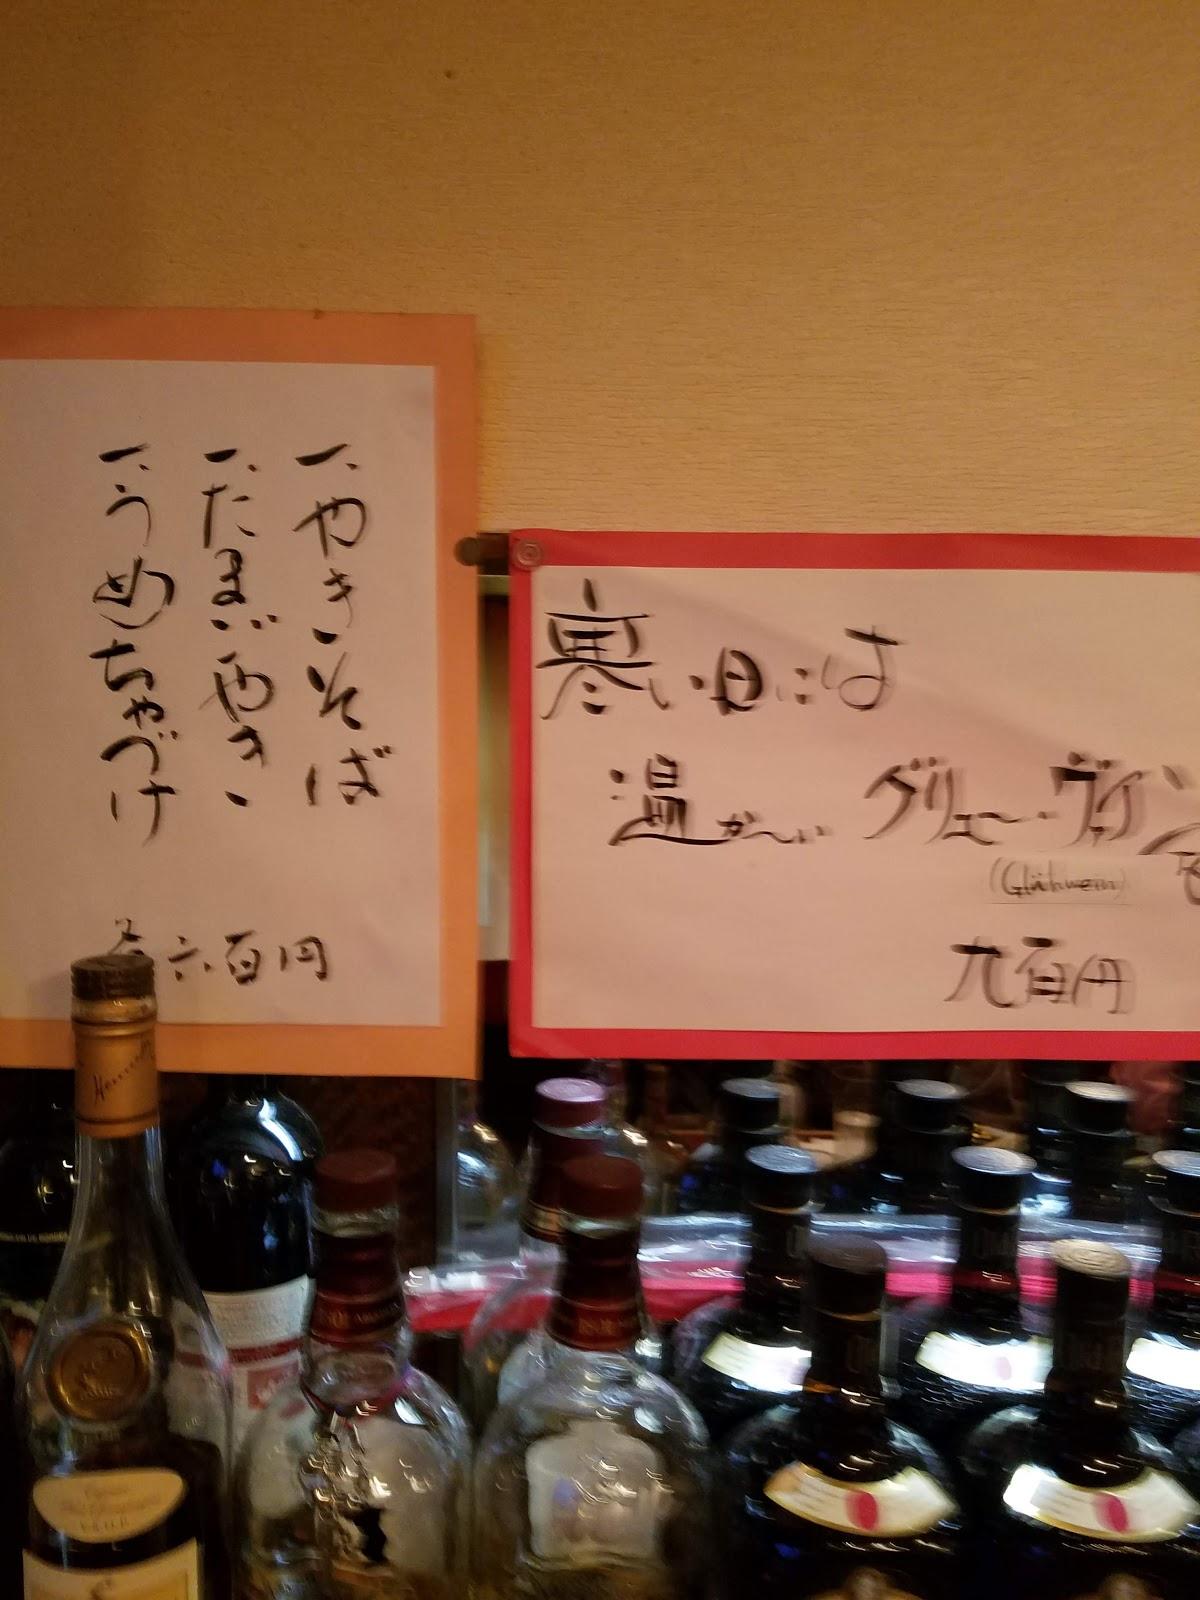 一、やきそば
一、たまごやき
一、うめちゃづけ
各六百円
寒い日には
温か〜い グリュー・ヴァイン
(Glühwein)
九百円
Hennessy